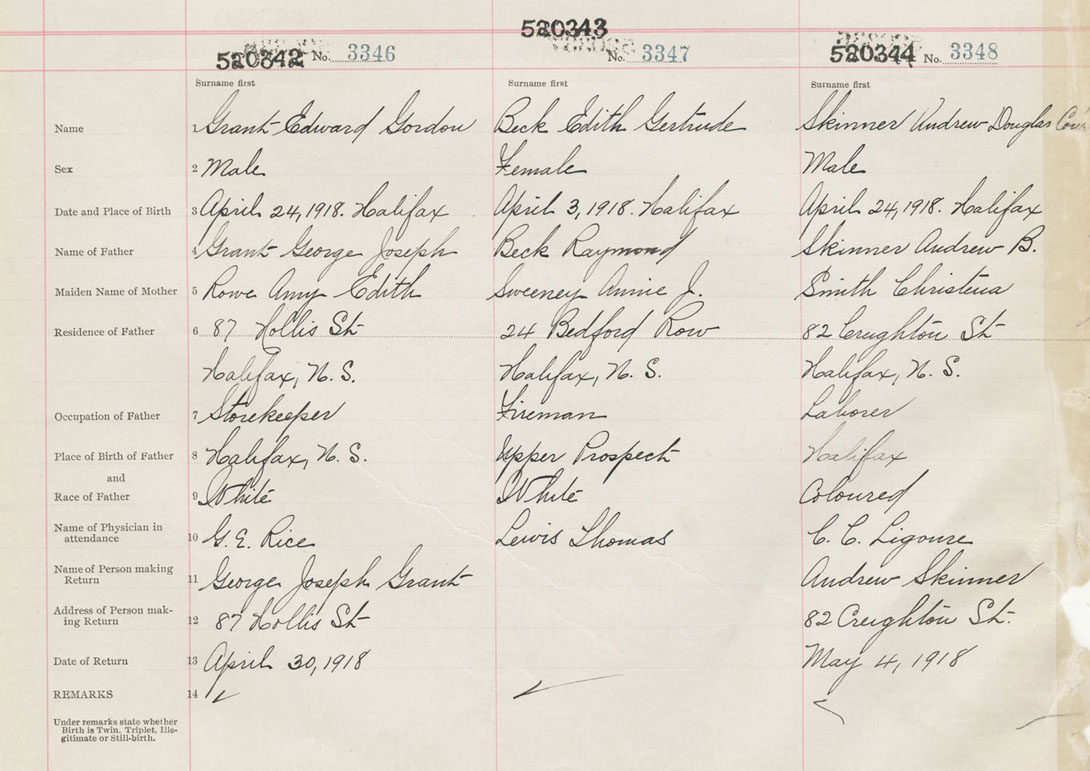 520343
520342 No. 3346 No. 3347 520344 No. 3348
Surname first Surname first Surname first
Name 1 Grant Edward Gordon Beck Edith Gertrude Skinner Andrew Douglas
Sex 2 Male Female Male
Date and Place of Birth 3 April 24, 1918. Halifax April 3, 1918. Halifax April 24, 1918. Halifax
Name of Father 4 Grant George Joseph Beck Raymond Skinner Andrew B.
Maiden Name of Mother 5 Rowe Amy Edith Sweeney Annie J. Smith Christena
Residence of Father 6 87 Hollis St 24 Bedford Row 82 Creighton St
Halifax, N. S. Halifax, N. S. Halifax, N. S.
Occupation of Father 7 Storekeeper Fireman Laborer
Place of Birth of Father 8 Halifax, N. S. Upper Prospect Halifax
and
Race of Father 9 White White Coloured
Name of Physician in
attendance 10 G. E. Rice Lewis Thomas C. C. Ligoure
Name of Person making
Return 11 George Joseph Grant Andrew Skinner
Address of Person mak-
ing Return 12 87 Hollis St 82 Creighton St.
Date of Return 13 April 30, 1918 May 4, 1918
REMARKS 14
Under remarks state whether
Birth is Twin, Triplet, Ille-
gitimate or Still-birth.